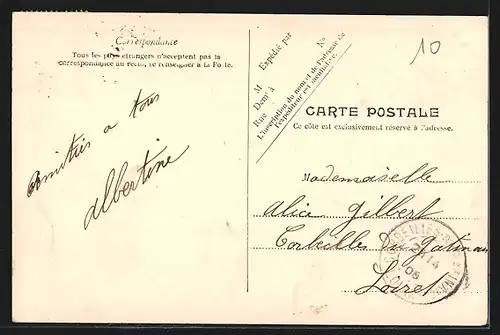 Correspondance
Tous les pays étrangers n'acceptent pas la
correspondance au recto, se renseigner à la Poste.
amitiés a tous
Albertine
Expédié par
M
Demt à
Rue
No
L'inscription du nom et de l'adresse de
l'expéditeur est facultative.
10
CARTE POSTALE
Ce côté est exclusivement réservé à l'adresse.
Mademoiselle
Alice Gilbert
Corbeilles Du Gatinais
Loiret